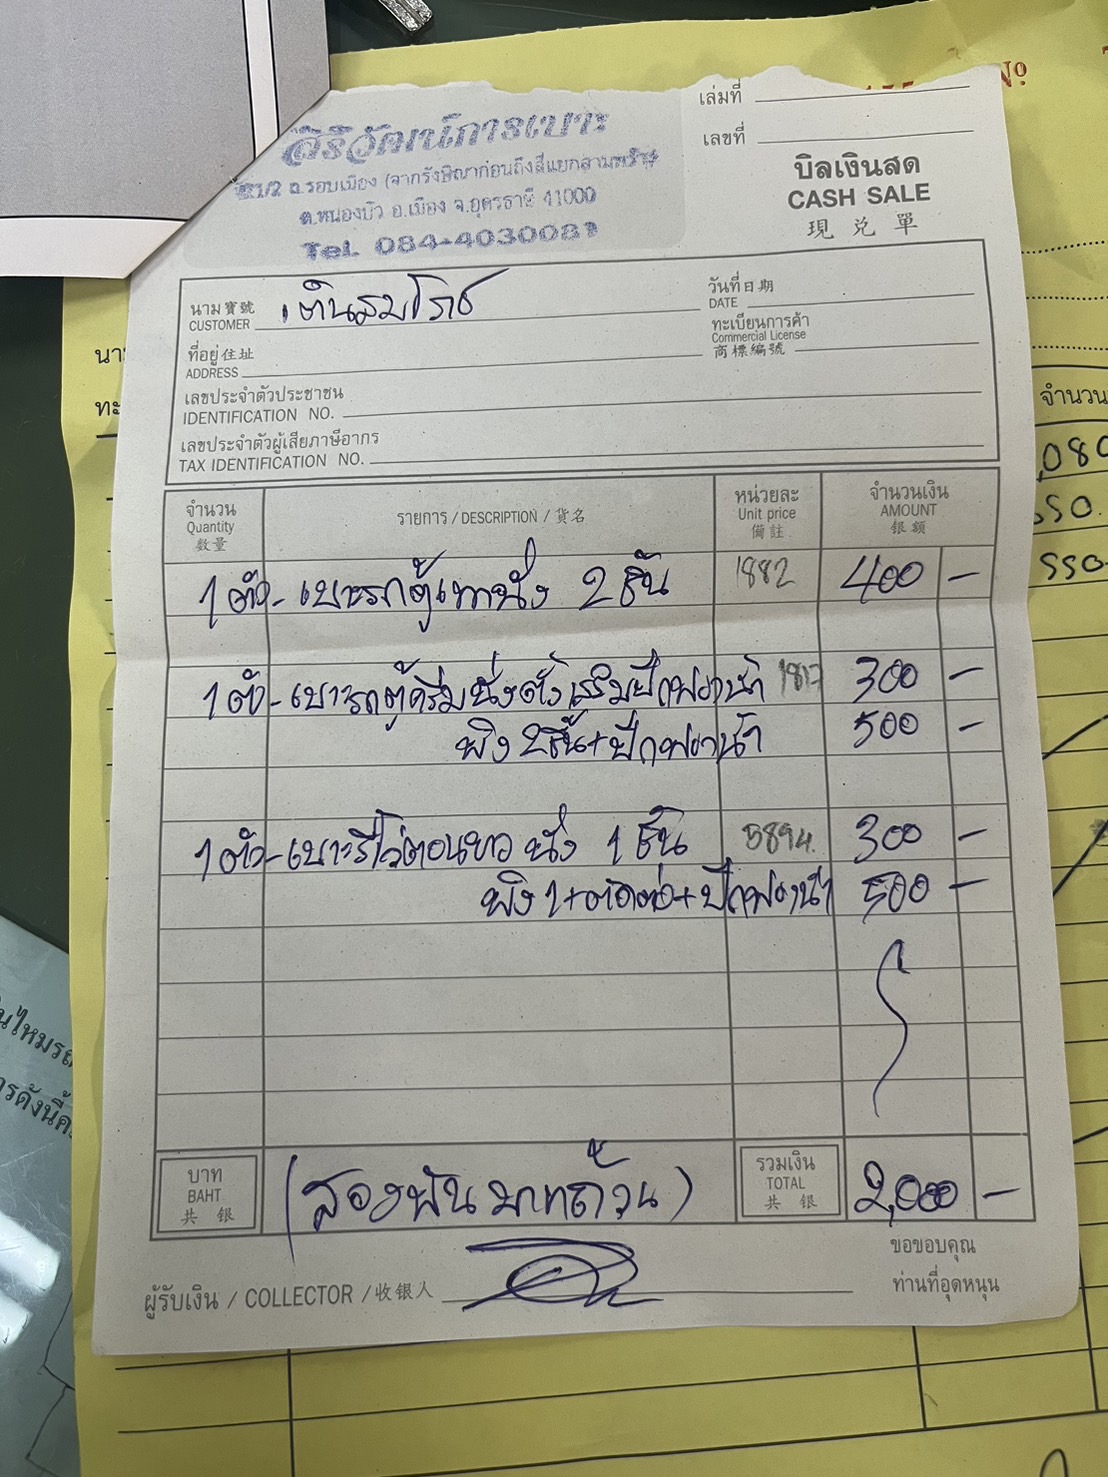 Nº
เล่มที่
เลขที่
สิริวัฒน์การเบาะ
ถ.รอบเมือง (จากรังษิณาก่อนถึงสี่แยกสามพร้าว)
ต.หนองบัว อ.เมือง จ.อุดรธานี 41000
Tel. 084-4030081
บิลเงินสด
CASH SALE
現 兌 單
นาม寶號
CUSTOMER
วันที่日期
DATE
ทะเบียนการค้า
Commercial License
商標編號
ที่อยู่住址
ADDRESS
เลขประจำตัวประชาชน
IDENTIFICATION NO.
เลขประจำตัวผู้เสียภาษีอากร
TAX IDENTIFICATION NO.
จำนวน
Quantity
数量
รายการ / DESCRIPTION / 貨名
หน่วยละ
Unit price
備註
จำนวนเงิน
AMOUNT
银额
1 ตัว - เบาะรถตู้เทานั่ง 2 ชิ้น 1882 400 -
1 ตัว - เบาะรถตู้ครีมนั่งตั้งเสริมปีกฟองน้ำ 1817 300 -
พิง 2ชิ้น+ปีกฟองน้ำ 500 -
1 ตัว - เบาะรีโว่ตอนยาว นั่ง 1 ชิ้น 5894. 300 -
พิง 1+ตัดต่อ+ปีกฟองน้ำ 500 -
บาท
BAHT
共 银
(สองพันบาทถ้วน)
รวมเงิน
TOTAL
共 银
2,000 -
ขอขอบคุณ
ท่านที่อุดหนุน
ผู้รับเงิน / COLLECTOR / 收银人
จำนวน